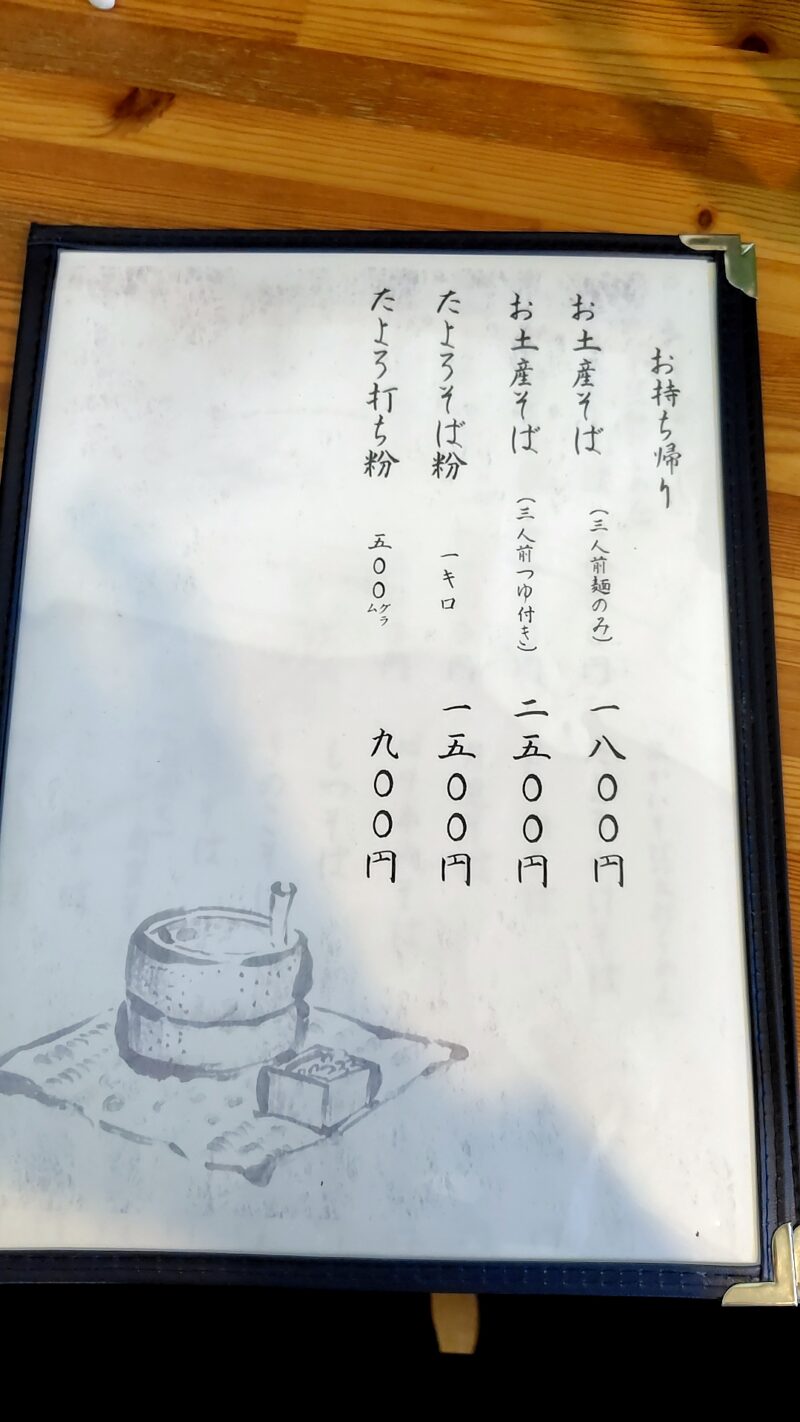 お持ち帰り
お土産そば （三人前麺のみ） 一八〇〇円
お土産そば （三人前つゆ付き） 二五〇〇円
たよろそば粉 一キロ 一五〇〇円
たよろ打ち粉 五〇〇グラム 九〇〇円